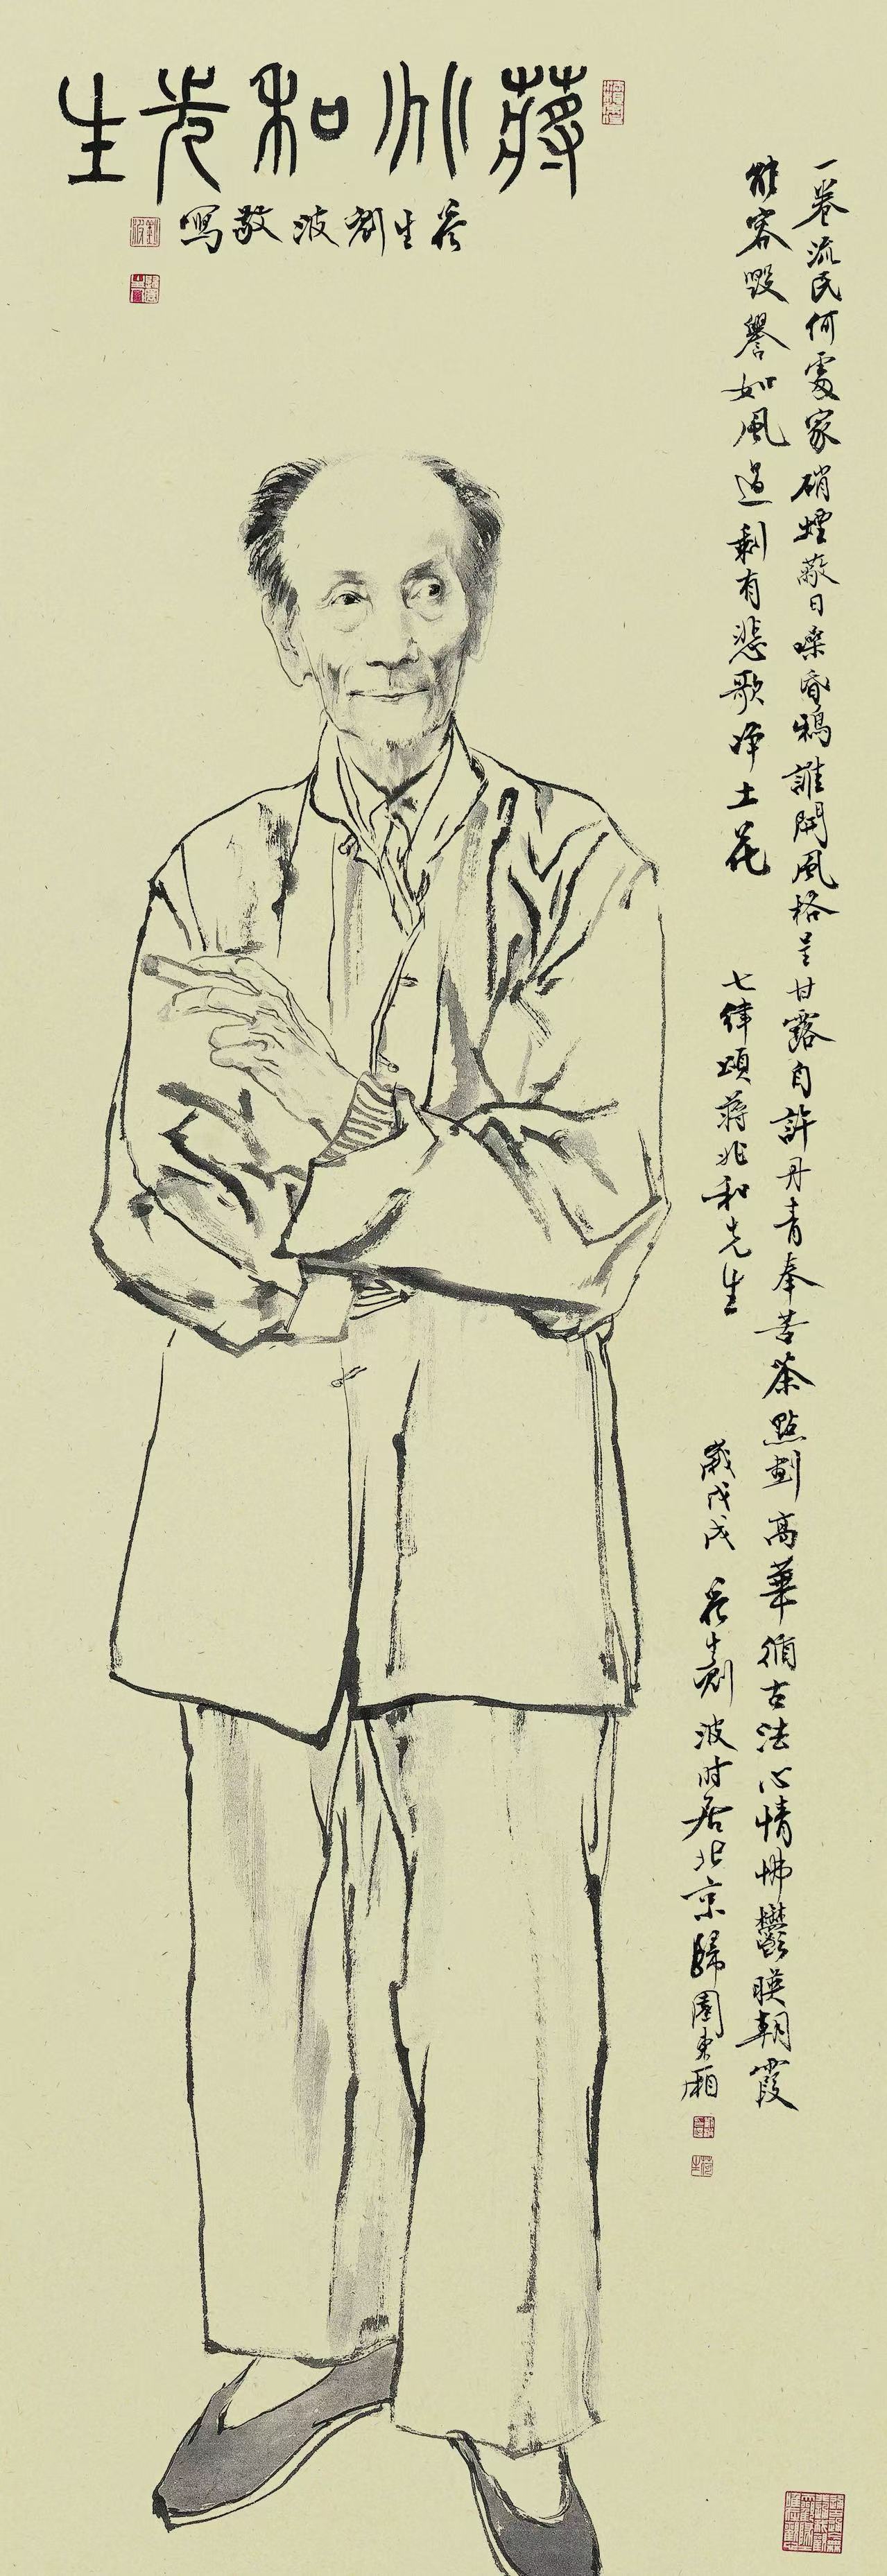 蔣兆和先生
生劉波敬寫
一卷流民何處家硝煙蔽日噪昏鴉誰開風格呈甘露自許丹青奉苦茶點劃高華循古法心情怫鬱映朝霞
能容毀譽如風過剩有悲歌淨土花 七律頌蔣兆和先生
歲戊戌 生劉波时居北京歸園東廂